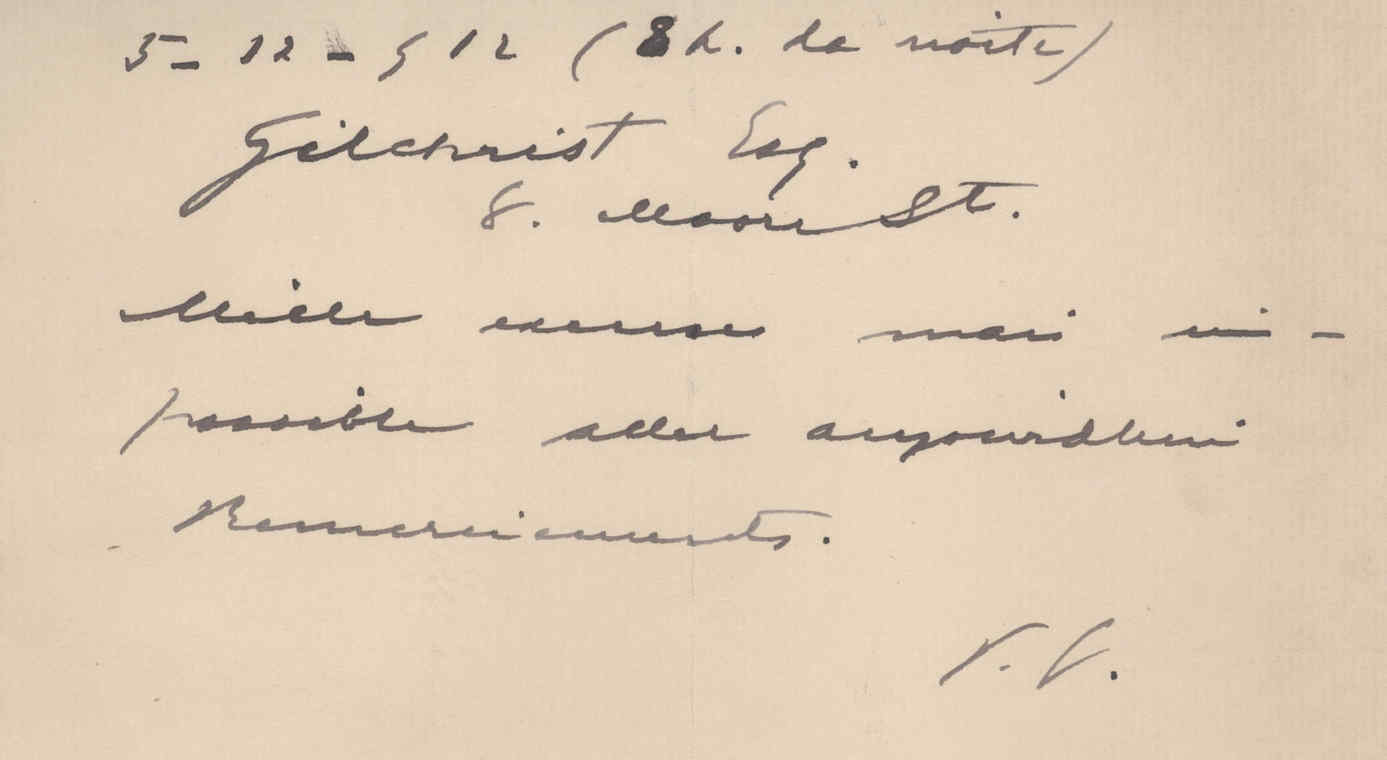 5-12-912 (8 h. da noite)
Gilchrist Esq.
8. Moore St.
Mille excuses mais im-
possible aller aujourdhui
Remerciements.
V. V.